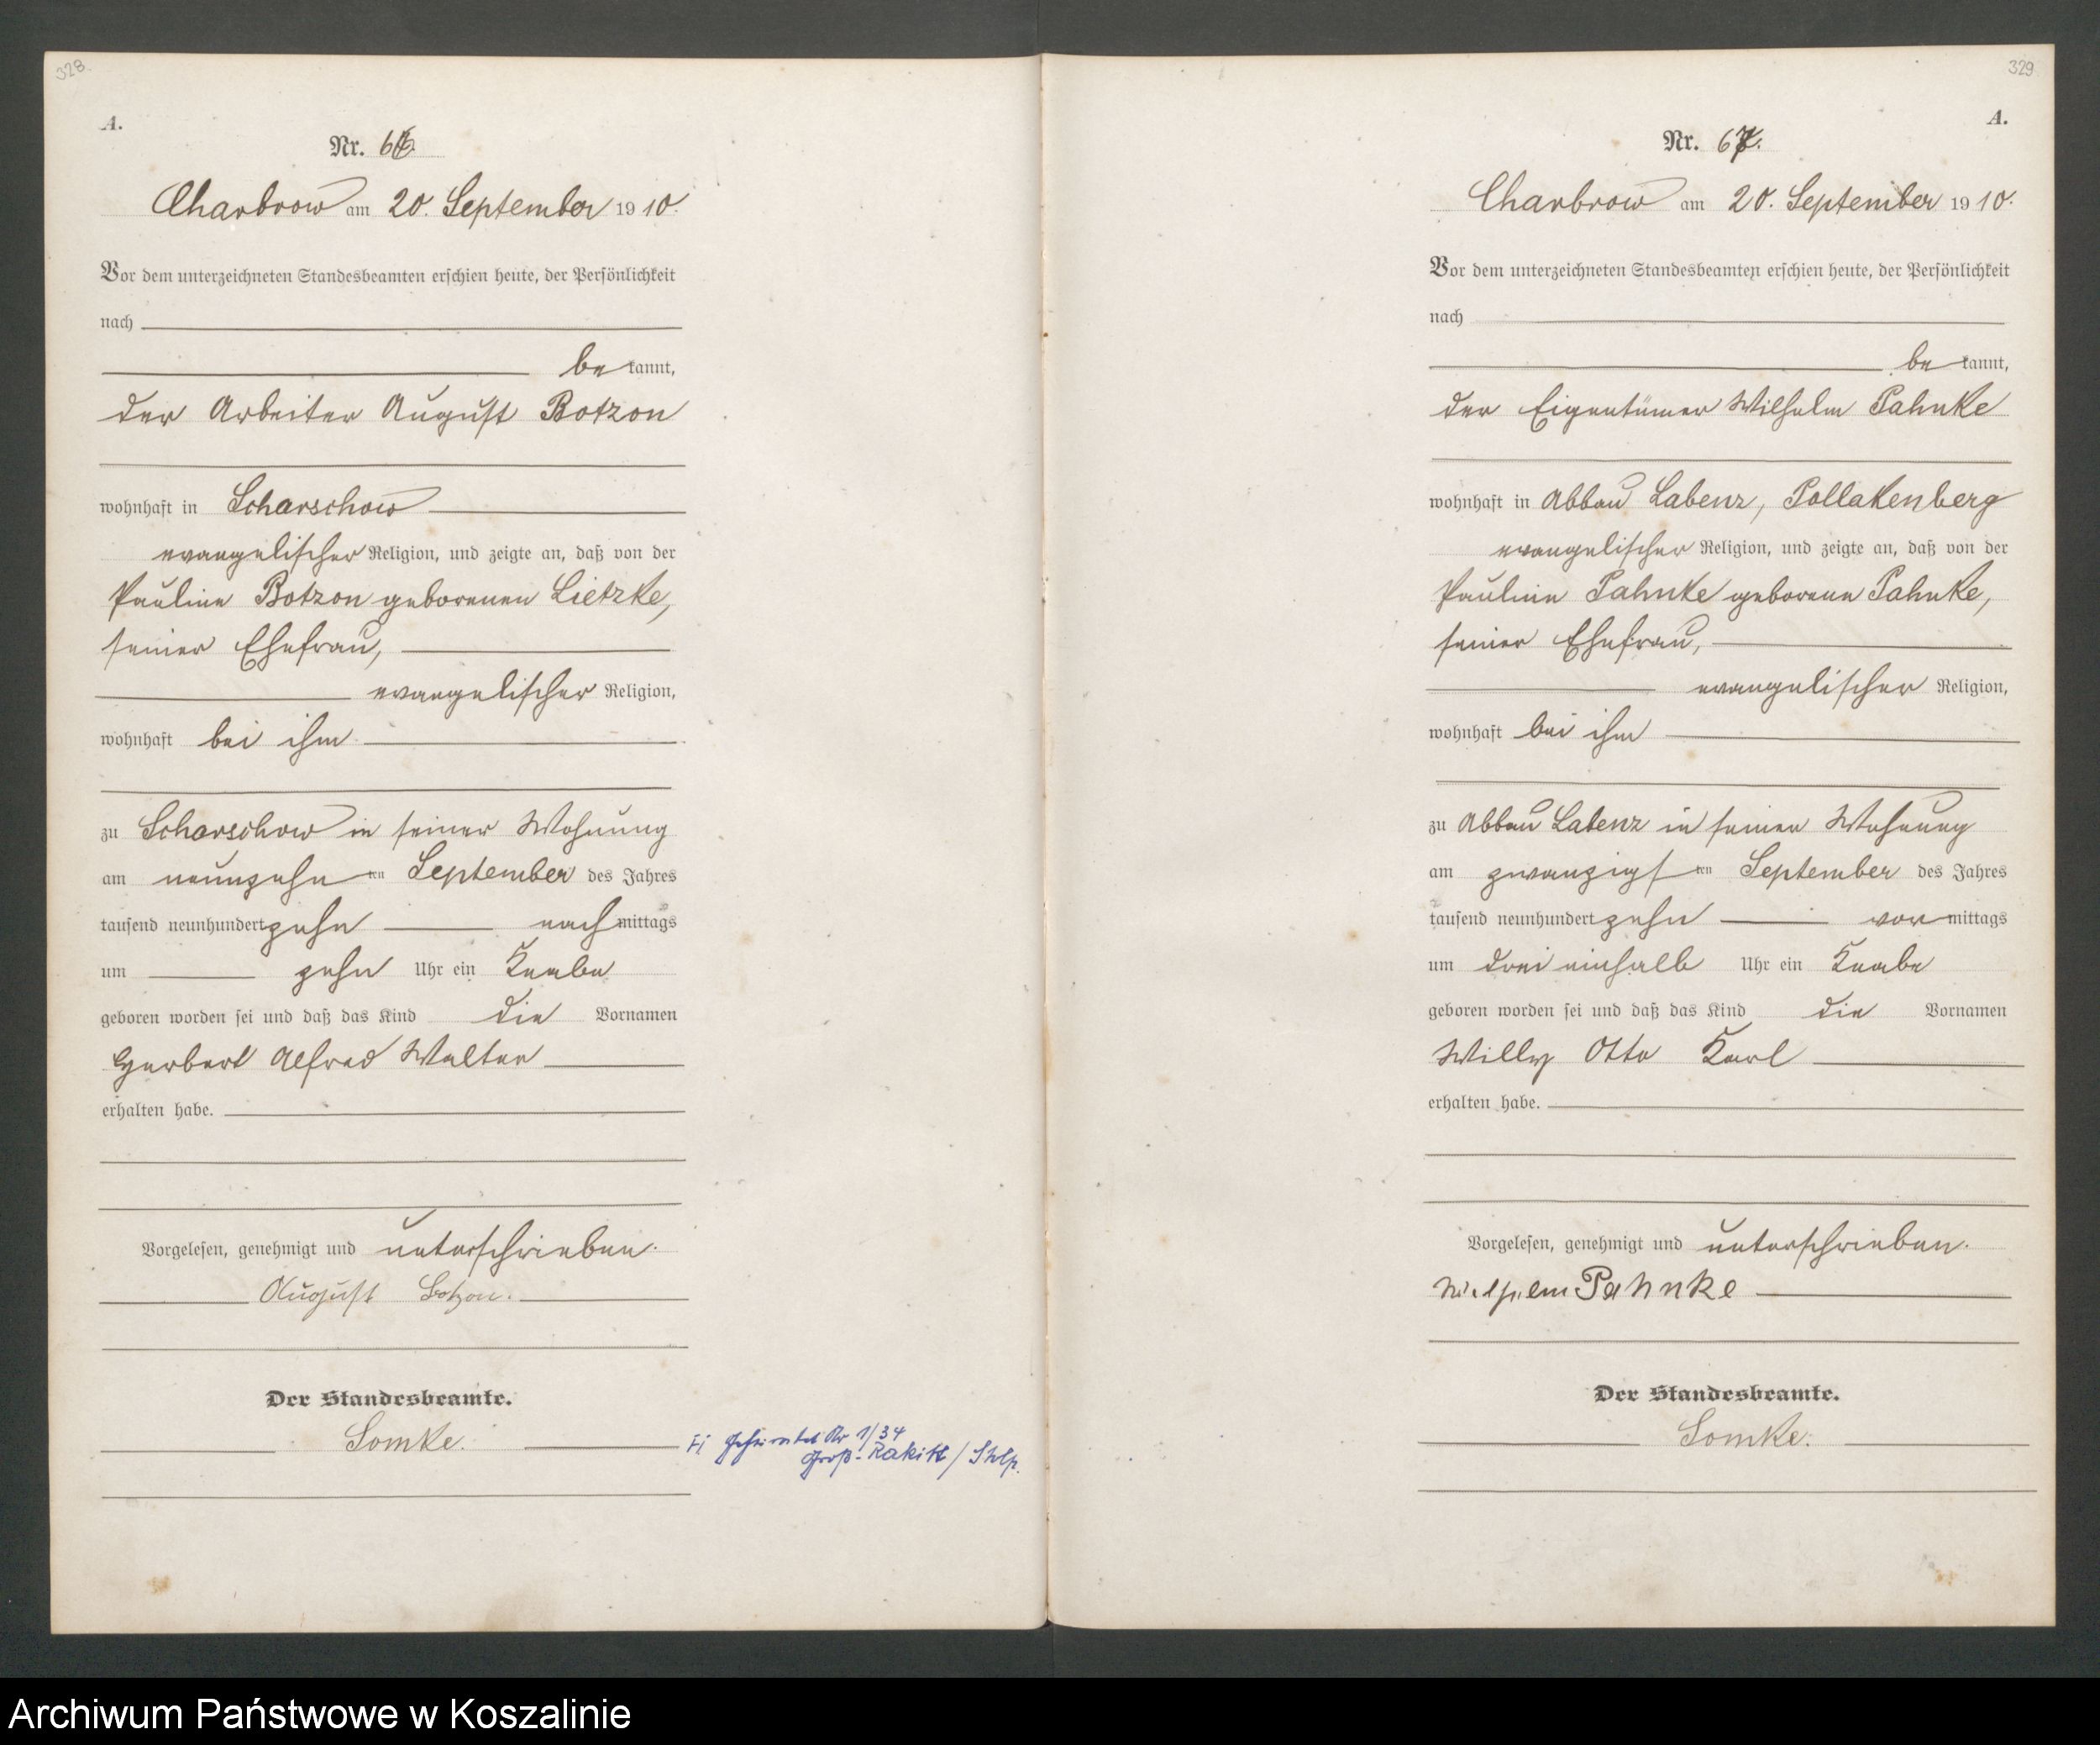 328.
A.
Nr. 66.
Charbrow am 20. September 1910.
Vor dem unterzeichneten Standesbeamten erschien heute, der Persönlichkeit
nach
be kannt,
der Arbeiter August Botzon
wohnhaft in Scharschow
evangelischer Religion, und zeigte an, daß von der
Pauline Botzon geborenen Lietzke,
seiner Ehefrau,
evangelischer Religion,
wohnhaft bei ihm
zu Scharschow in seiner Wohnung
am neunzehn ten September des Jahres
tausend neunhundert zehn nach mittags
um zehn Uhr ein Knabe
geboren worden sei und daß das Kind die Vornamen
Herbert Alfred Walter
erhalten habe.
Vorgelesen, genehmigt und unterschrieben.
August Botzon.
Der Standesbeamte.
Lomke.
geheiratet Nr 1/34
Groß-Rakitt / Stlp.
329
A.
Nr. 67.
Charbrow am 20. September 1910.
Vor dem unterzeichneten Standesbeamten erschien heute, der Persönlichkeit
nach
be kannt,
der Eigentümer Wilhelm Pahnke
wohnhaft in Abbau Labenz, Pollakenberg
evangelischer Religion, und zeigte an, daß von der
Pauline Pahnke geborene Pahnke,
seiner Ehefrau,
evangelischer Religion,
wohnhaft bei ihm
zu Abbau Labenz in seiner Wohnung
am zwanzigs ten September des Jahres
tausend neunhundert zehn vor mittags
um drei einhalb Uhr ein Knabe
geboren worden sei und daß das Kind die Vornamen
Willy Otto Karl
erhalten habe.
Vorgelesen, genehmigt und unterschrieben.
Wilhelm Pahnke
Der Standesbeamte.
Lomke.
Archiwum Państwowe w Koszalinie